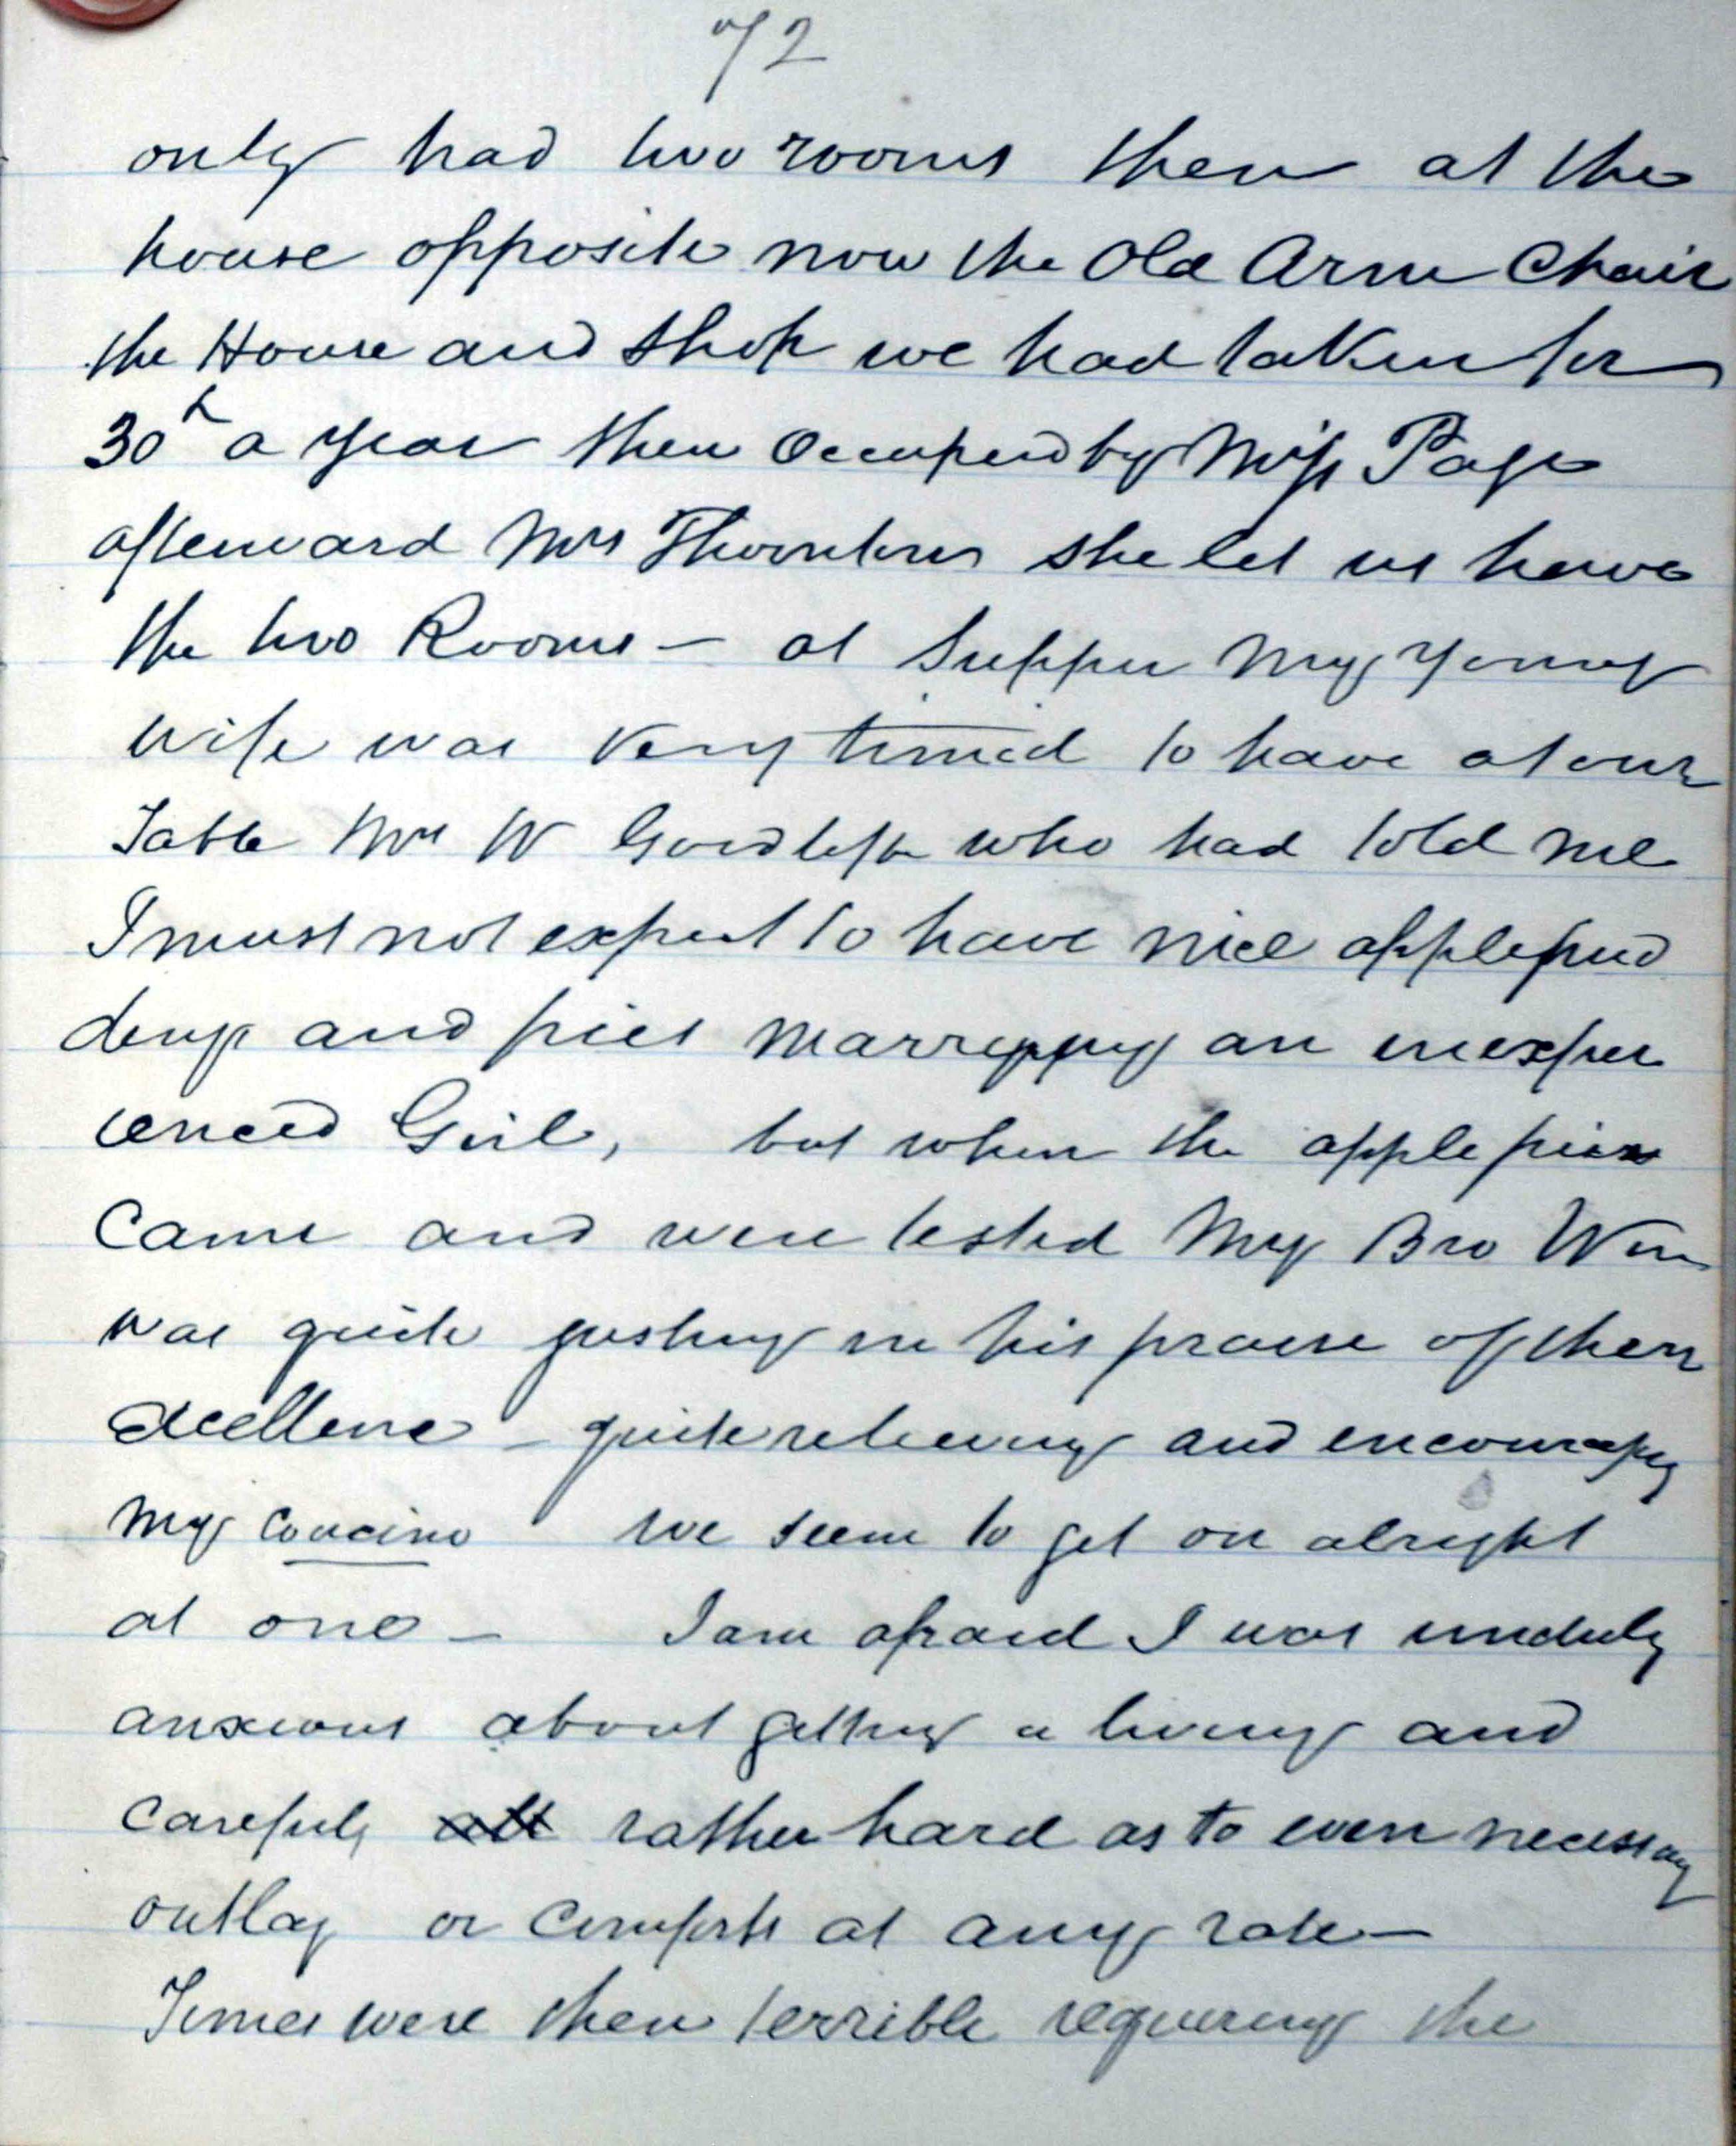 72
only had two rooms then at the
house opposite now the Old Arm Chair
the House and Shop we had taken for
30£ a year then Occupied by Miss Page
afterward Mrs Thornton she let us have
the two Rooms – at Supper My Young
wife was very timid to have at our
Table Mr W who had told me
I must not expect to have nice applepud
dings and pies Marrying an inexper
ienced Girl, but when the apple pies
Came and were tested My Bro Wm
was quite gushing in his praise of their
Excellence – quite relieving and encouraging
My we seem to get on alright
at once – I am afraid I was unduly
anxious about getting a living and
Carefull all rather hard as to even necessary
outlay or Comforts at any rate –
Times were then terrible requiring the